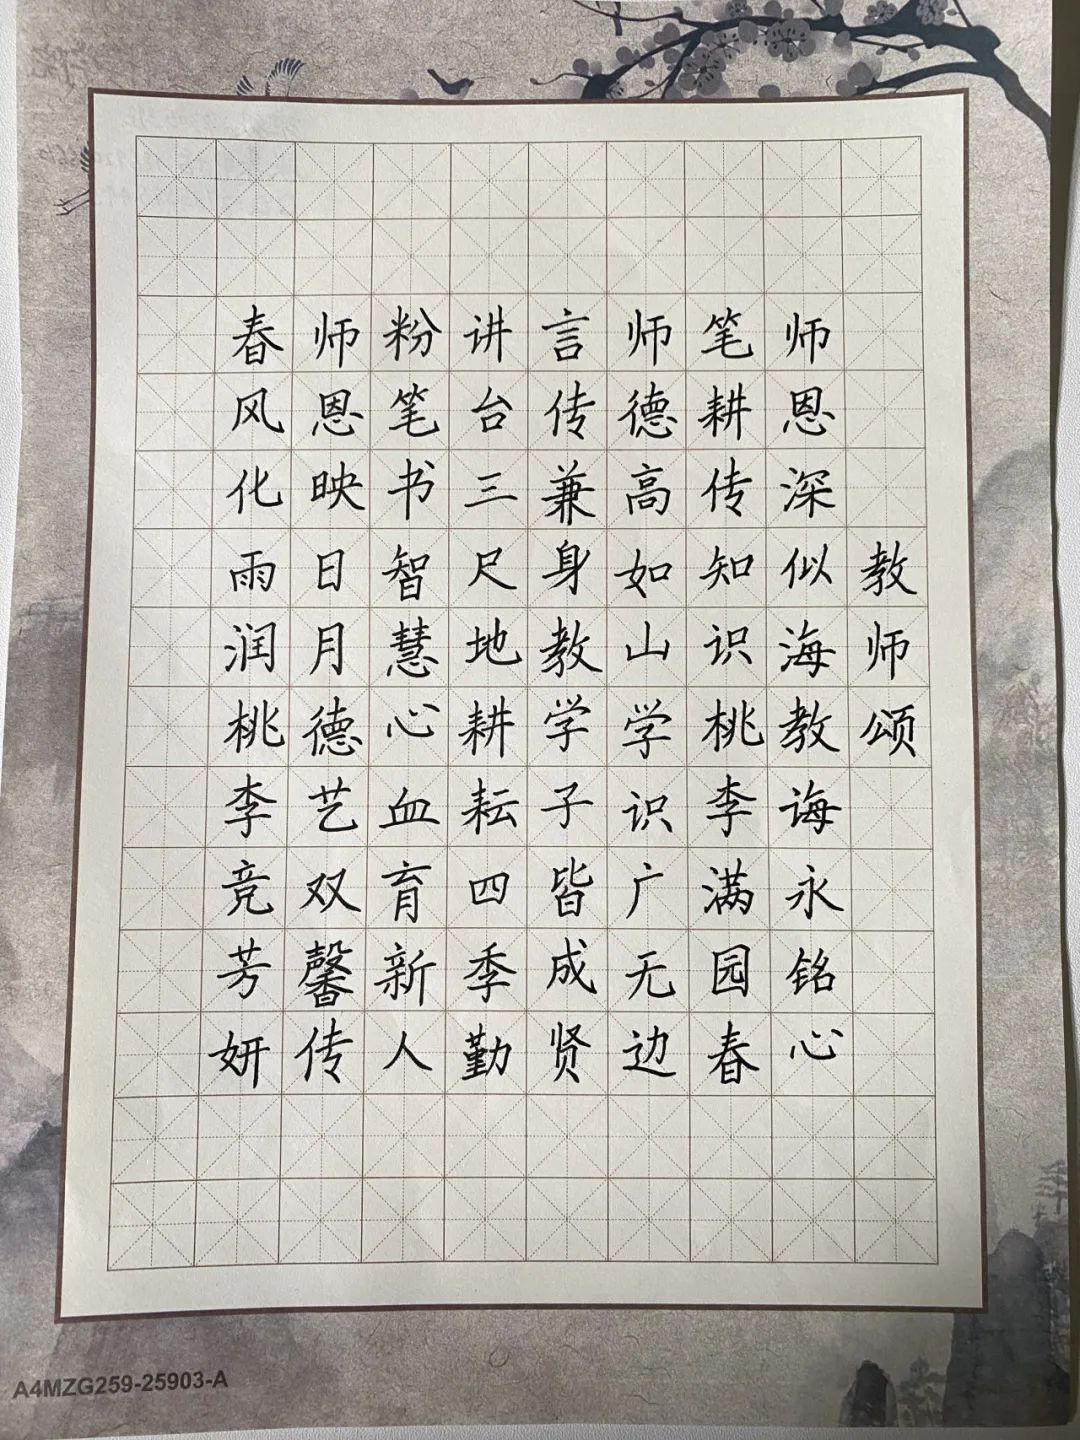 教师颂
师恩深似海教诲永铭心
笔耕传知识桃李满园春
师德高如山学识广无边
言传兼身教学子皆成贤
讲台三尺地耕耘四季勤
粉笔书智慧心血育新人
师恩映日月德艺双馨传
春风化雨润桃李竞芳妍
A4MZG259-25903-A